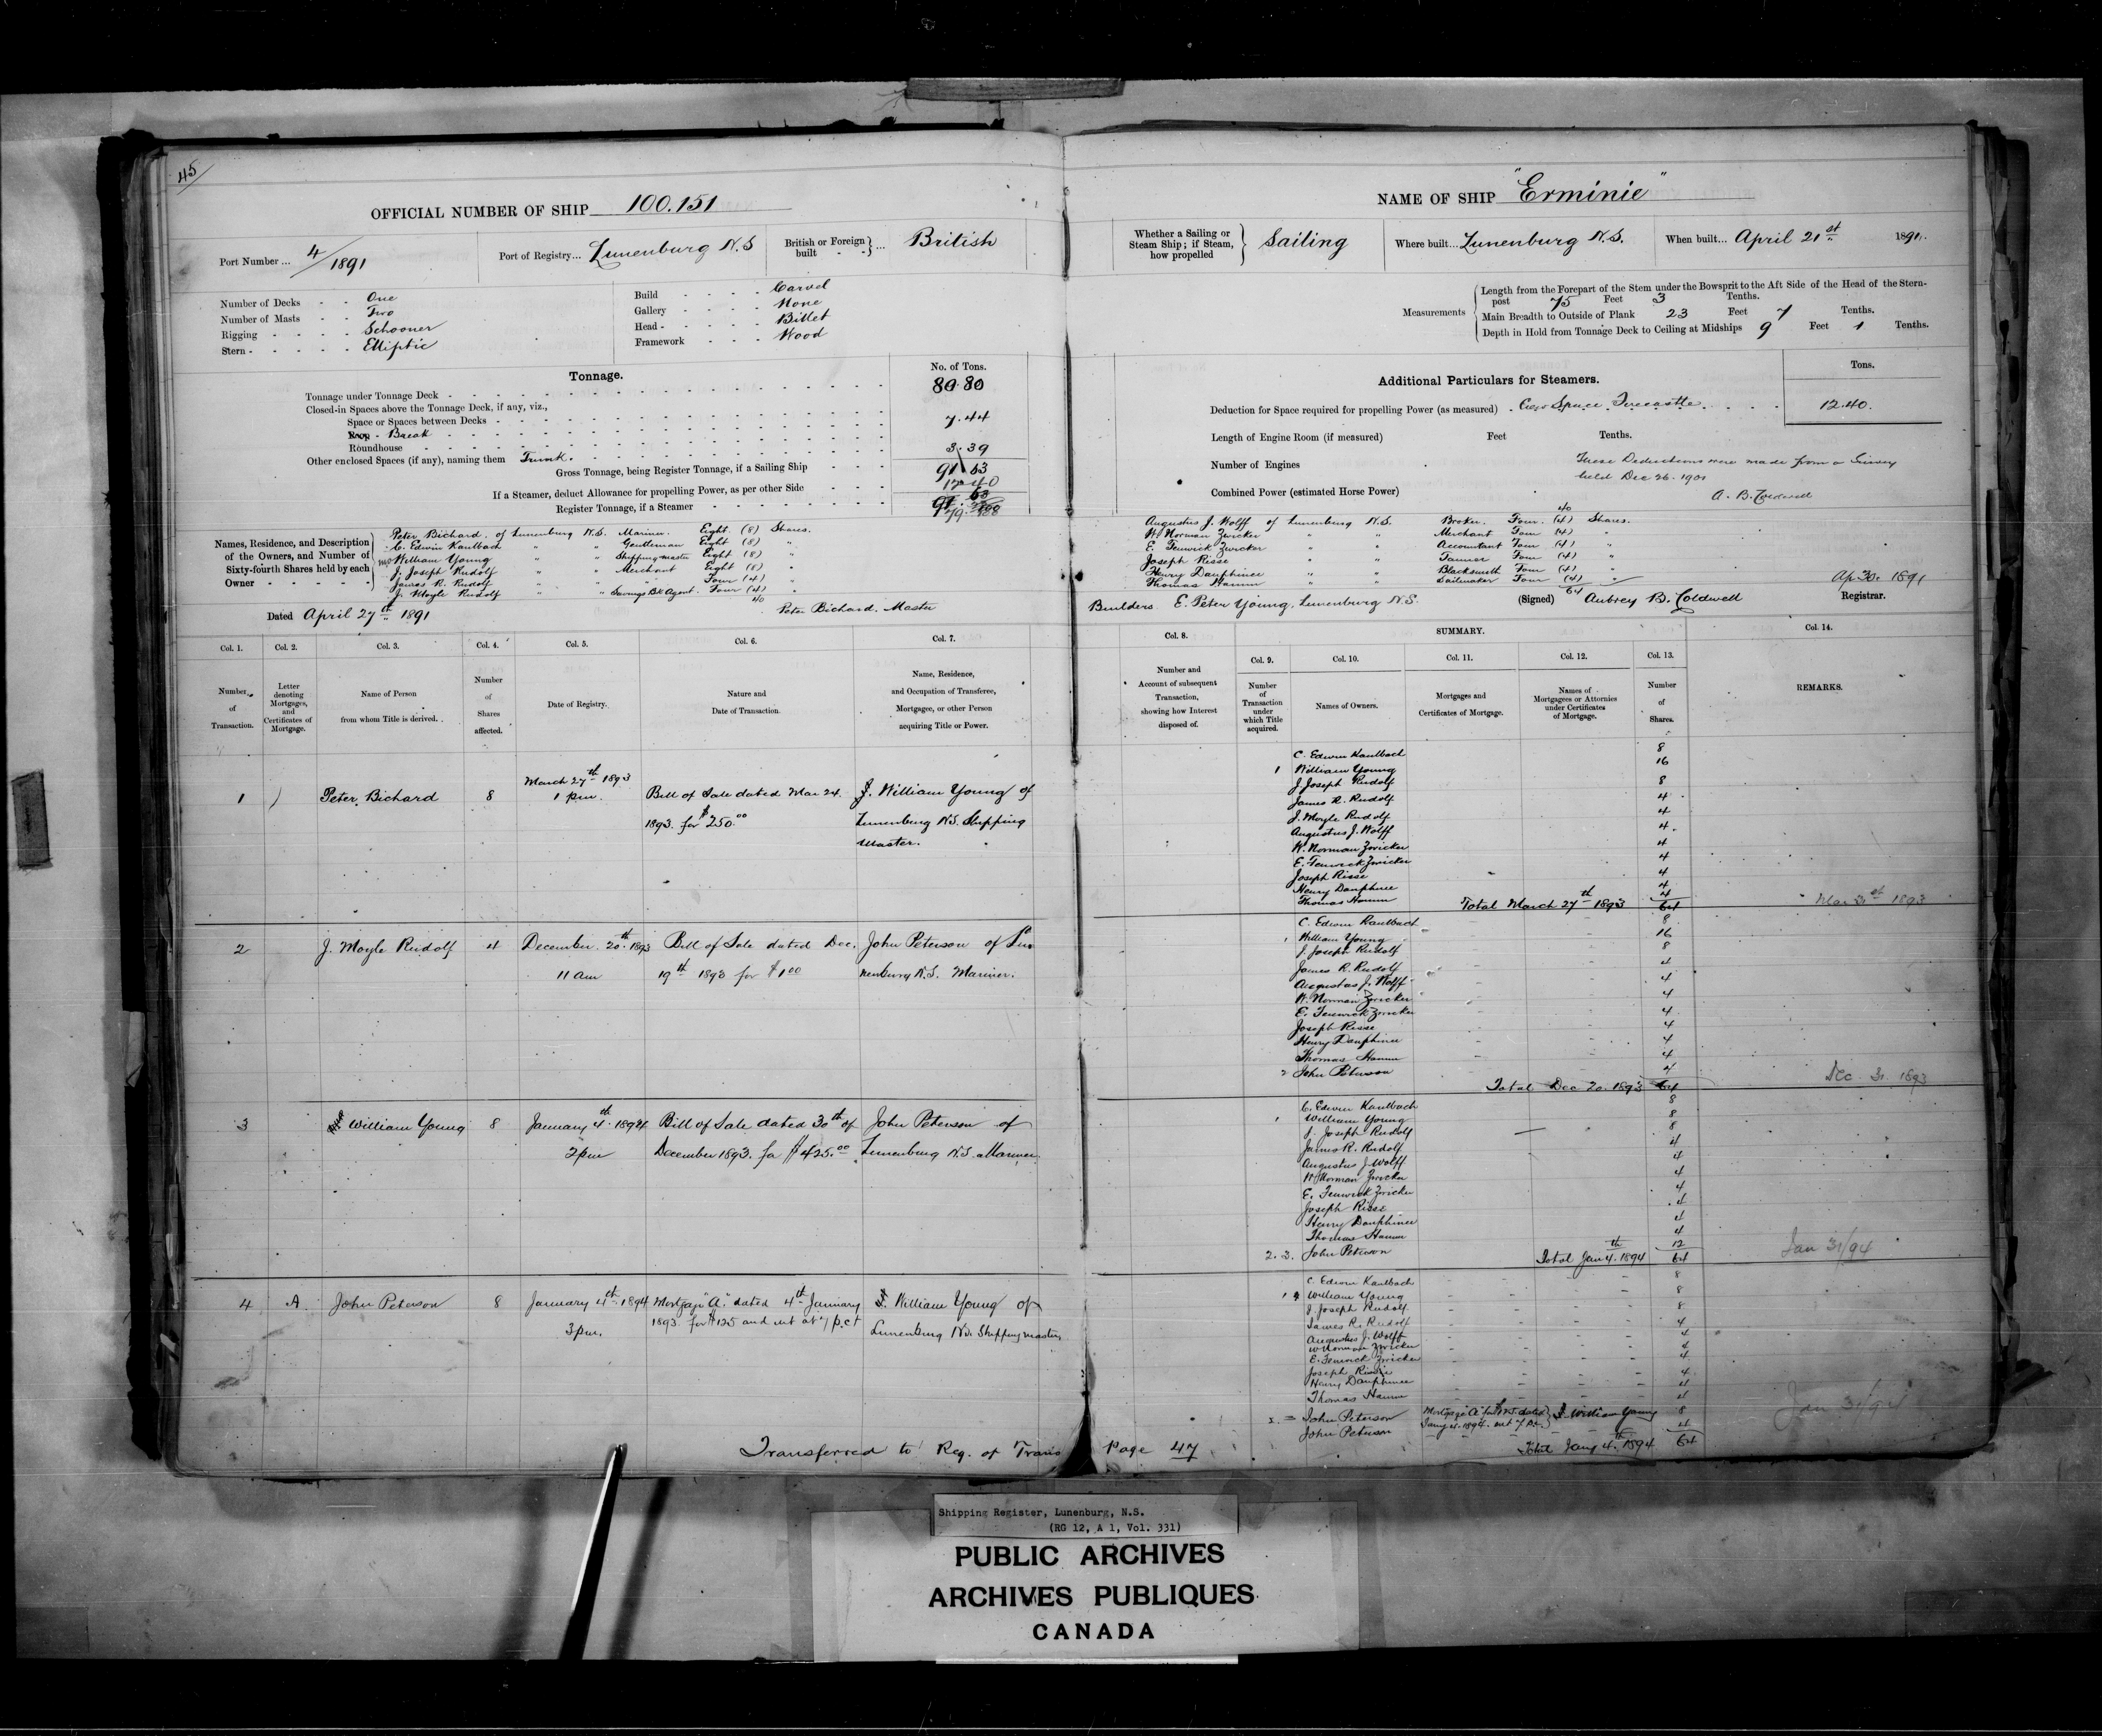 45
OFFICIAL NUMBER OF SHIP 100.151
Port Number ... 4/1891
Port of Registry... Lunenburg N.S
British or Foreign built } ... British
Number of Decks - - One
Number of Masts - - Two
Rigging - - - - Schooner
Stern - - - - - Elliptic
Build - - - - Carvel
Gallery - - - - None
Head - - - - - Billet
Framework - - - Wood
Tonnage.
No. of Tons.
Tonnage under Tonnage Deck - 80.80
Closed-in Spaces above the Tonnage Deck, if any, viz.,
Space or Spaces between Decks
Poop - Break 7.44
Roundhouse
Other enclosed Spaces (if any), naming them Trunk. 3.39
Gross Tonnage, being Register Tonnage, if a Sailing Ship 91.63
If a Steamer, deduct Allowance for propelling Power, as per other Side 12.40
Register Tonnage, if a Steamer
Names, Residence, and Description of the Owners, and Number of Sixty-fourth Shares held by each Owner
Peter Bichard. of Lunenburg N.S. Mariner. Eight (8) Shares.
C. Edwin Kaulbach " " Gentleman Eight (8) "
William Young " " Shipping master Eight (8) "
J. Joseph Rudolf " " Merchant Eight (8) "
James R. Rudolf " " " Four (4) "
J. Moyle Rudolf " " Savings Bk Agent. Four (4) "
40
Peter Bichard. Master
Dated April 27th 1891
Col. 1. Col. 2. Col. 3. Col. 4. Col. 5. Col. 6. Col. 7.
Number of Transaction.
Letter denoting Mortgages, and Certificates of Mortgage.
Name of Person from whom Title is derived.
Number of Shares affected.
Date of Registry.
Nature and Date of Transaction.
Name, Residence, and Occupation of Transferee, Mortgagee, or other Person acquiring Title or Power.
1 Peter Bichard 8 March 27th 1893 1 p.m. Bill of Sale dated Mar 24. 1893. for $250.00 J. William Young of Lunenburg N.S. Shipping Master.
2 J. Moyle Rudolf 4 December. 20th 1893 11 am Bill of Sale dated Dec. 19th 1893 for $1.00 John Peterson of Lunenburg N.S. Mariner.
3 William Young 8 January 4th 1894 2 pm Bill of Sale dated 30th of December 1893. for $425.00 John Peterson of Lunenburg N.S. Mariner.
4 A. John Peterson 8 January 4th 1894 3 pm. Mortgage "A." dated 4th January 1893. for $125 and int at 7 p.ct J. William Young of Lunenburg N.S. Shipping master
Transferred to Reg. of Trans
NAME OF SHIP "Erminie"
Whether a Sailing or Steam Ship; if Steam, how propelled } Sailing
Where built... Lunenburg N.S.
When built... April 21st 1891.
Measurements
Length from the Forepart of the Stem under the Bowsprit to the Aft Side of the Head of the Stern-
post 75 Feet 3 Tenths.
Main Breadth to Outside of Plank 23 Feet 7 Tenths.
Depth in Hold from Tonnage Deck to Ceiling at Midships 9 Feet 1 Tenths.
Additional Particulars for Steamers.
Tons.
Deduction for Space required for propelling Power (as measured) . Crew Space. Forecastle. 12.40.
Length of Engine Room (if measured) Feet Tenths.
Number of Engines
Combined Power (estimated Horse Power)
These Deductions were made from a Survey
held Dec 26. 1901
A. B. Coldwell
40
Augustus J. Wolff of Lunenburg N.S. Broker. Four. (4) Shares.
W. Norman Zwicker " " Merchant Four (4) "
E. Fenwick Zwicker " " Accountant Four (4) "
Joseph Risse " " Farmer Four (4) "
Henry Dauphinee " " Blacksmith Four (4) "
Thomas Hamm " " Sailmaker Four (4) "
64
Builders. E. Peter Young, Lunenburg N.S.
(Signed) Aubrey B. Coldwell
Ap 30. 1891
Registrar.
Col. 8. SUMMARY. Col. 14.
Col. 9. Col. 10. Col. 11. Col. 12. Col. 13.
Number and Account of subsequent Transaction, showing how Interest disposed of.
Number of Transaction under which Title acquired.
Names of Owners.
Mortgages and Certificates of Mortgage.
Names of Mortgagees or Attornies under Certificates of Mortgage.
Number of Shares.
REMARKS.
C. Edwin Kaulbach 8
1 William Young 16
J Joseph Rudolf 8
James R. Rudolf 4
J. Moyle Rudolf 4
Augustus J. Wolff 4
W. Norman Zwicker 4
E. Fenwick Zwicker 4
Joseph Risse 4
Henry Dauphinee 4
Thomas Hamm 4
Total March 27th 1893 64
Mar 31st 1893
C. Edwin Kaulbach 8
1 William Young 16
J. Joseph Rudolf 8
James R. Rudolf 4
Augustus J. Wolff 4
W. Norman Zwicker 4
E. Fenwick Zwicker 4
Joseph Risse 4
Henry Dauphinee 4
Thomas Hamm 4
2 John Peterson 4
Total Dec 20. 1893 64
Dec. 31. 1893
C. Edwin Kaulbach 8
1 William Young 8
J. Joseph Rudolf 8
James R. Rudolf 4
Augustus J Wolff 4
W Norman Zwicker 4
E. Fenwick Zwicker 4
Joseph Risse 4
Henry Dauphinee 4
Thomas Hamm 4
2. 3. John Peterson 12
Total Jan 4th 1894 64
Jan 31/94
C Edwin Kaulbach 8
1 William Young 8
J. Joseph Rudolf 8
James R. Rudolf 4
Augustus J. Wolff 4
W Norman Zwicker 4
E. Fenwick Zwicker 4
Joseph Risse 4
Henry Dauphinee 4
Thomas Hamm 4
John Peterson Mortgage "A" dated Jany 4. 1894. int 7 p.c. } J. William Young 8
John Peterson 4
Total Jany 4th 1894 64
Jan 31/94
Page 47
Shipping Register, Lunenburg, N.S.
(RG 12, A 1, Vol. 331)
PUBLIC ARCHIVES
ARCHIVES PUBLIQUES
CANADA